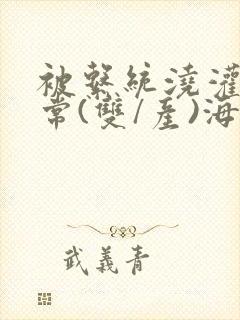 被繫統澆灌
常(雙/產)海
武義青